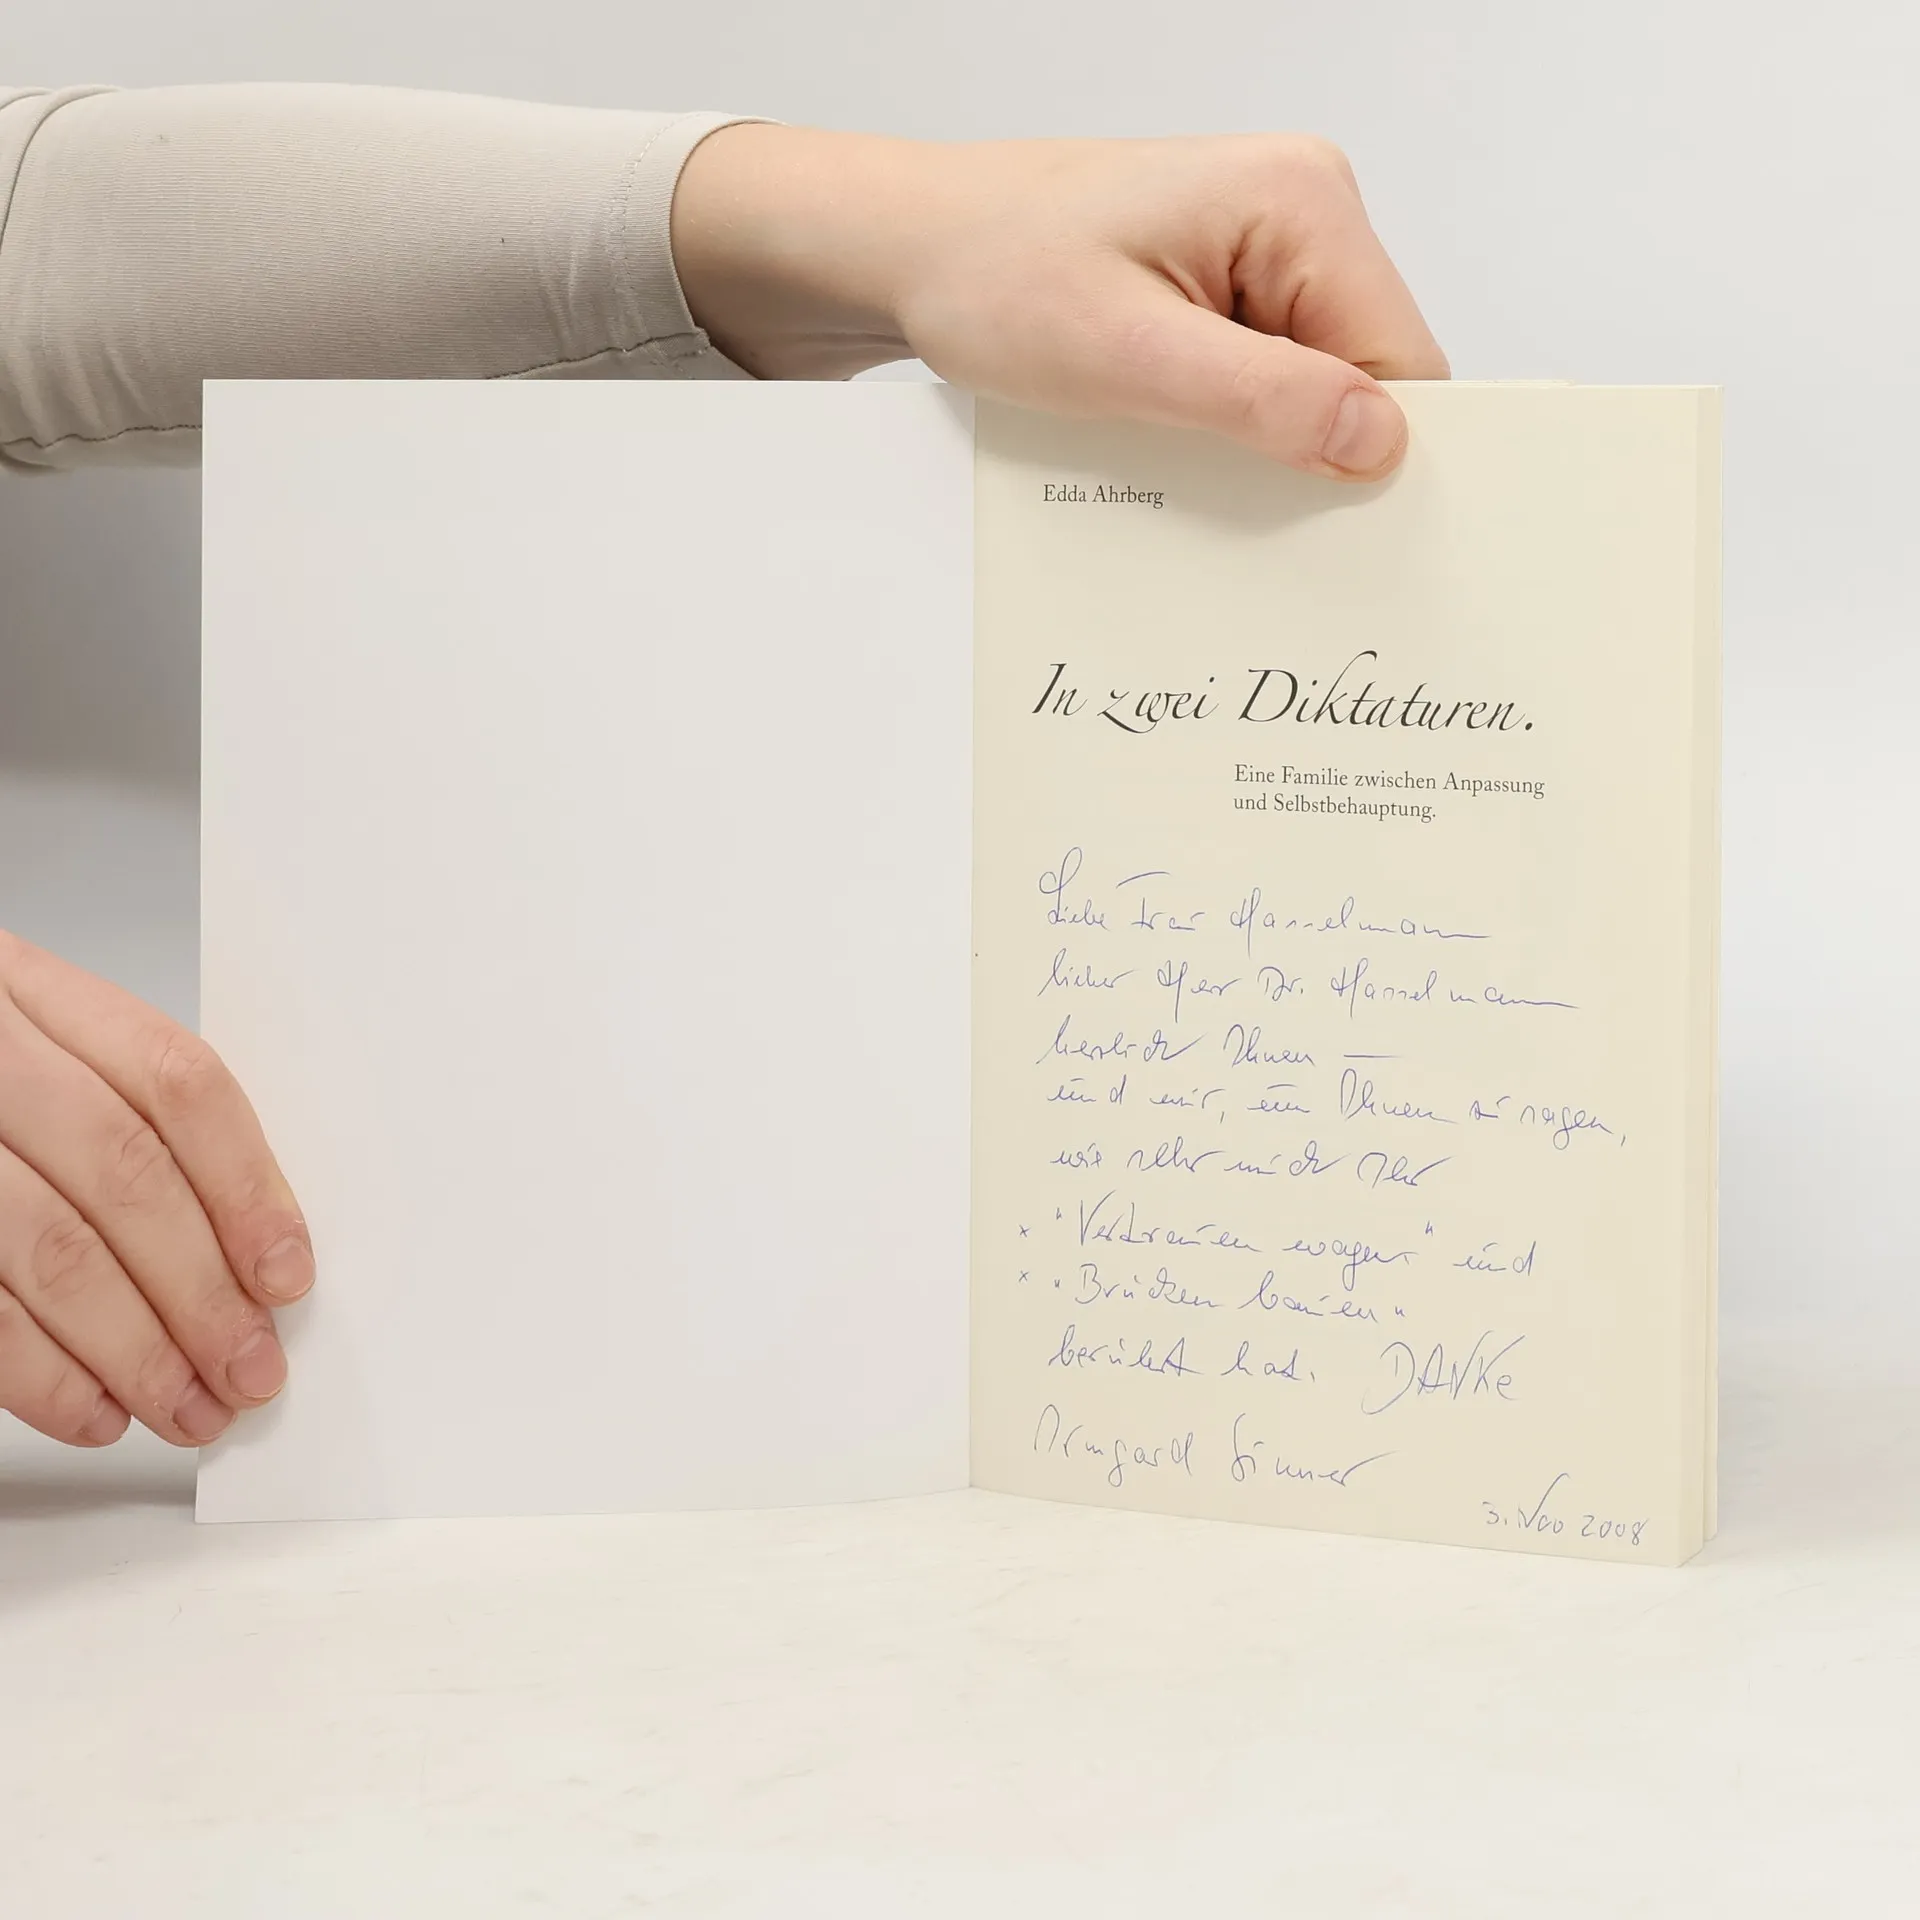 Edda Ahrberg
In zwei Diktaturen.
Eine Familie zwischen Anpassung
und Selbstbehauptung.
Liebe Frau Hasselmann
lieber Herr Dr. Hasselmann
herzlich Ihnen —
und mir, um Ihnen zu sagen,
wie sehr mich Ihr
x "Vertrauen wagen" und
x "Brücken bauen"
berührt hat. DANKE
Irmgard Sinner
3. Nov 2008